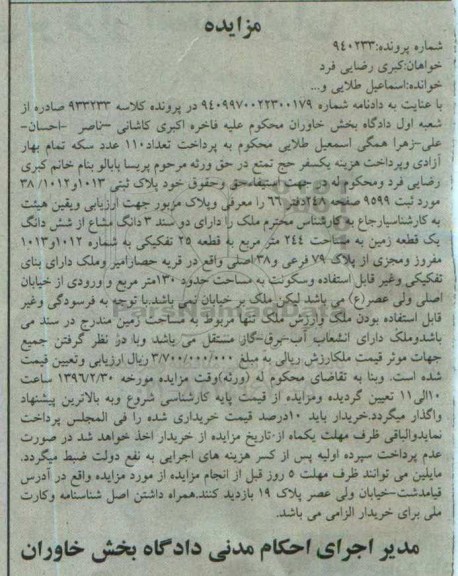 مزایده
شماره پرونده:۹۴۰۲۳۳
خواهان:کبری رضایی فرد
خوانده:اسماعیل طلایی و...
با عنایت به دادنامه شماره ۹۴۰۹۹۷۰۰۲۲۳۰۰۱۷۹ در پرونده کلاسه ۹۳۳۲۳۳ صادره از
شعبه اول دادگاه بخش خاوران محکوم علیه فاخره اکبری کاشانی –ناصر –احسان–
علی–زهرا همگی اسمعیل طلایی محکوم به پرداخت تعداد۱۱۰ عدد سکه تمام بهار
آزادی وپرداخت هزینه یکسفر حج تمتع در حق ورثه مرحوم پریسا بابالو بنام خانم کبری
رضایی فرد ومحکوم له در جهت استیفاءحق وحقوق خود پلاک ثبتی ۱۰۱۳و۳۸/۱۰۱۲
مورد ثبت ۹۵۹۹ صفحه ۲۴۸دفتر ۶۶ را معرفی وپلاک مزبور جهت ارزیابی ویقین هیئت
به کارشناسیارجاع به کارشناس محترم ملک را دارای دو سند ۳ دانگ مشاع از شش دانگ
یک قطعه زمین به مساحت ۲۴۴ متر مربع به قطعه ۲۵ تفکیکی به شماره ۱۰۱۲و۱۰۱۳
مفروز ومجزی از پلاک ۷۹ فرعی و۳۸اصلی واقع در قریه حصارامیر وملک دارای بنای
تفکیکی وغیر قابل استفاده وسکونت به مساحت حدود ۱۳۰متر مربع و ورودی از خیابان
اصلی ولی عصر(ع) می باشد لیکن ملک بر خیابان نمی باشد.با توجه به فرسودگی وغیر
قابل استفاده بودن ملک وارزش ملک تنها مربوط به مساحت زمین مندرج در سند می
باشدوملک دارای انشعاب آب–برق–گاز مستقل می باشد وبا در نظر گرفتن جمیع
جهات موثر قیمت ملکارزش ریالی به مبلغ ۳/۷۰۰/۰۰۰/۰۰۰ریال ارزیابی وتعیین قیمت
شده است. وبنا به تقاضای محکوم له (ورثه)وقت مزایده مورخه ۱۳۹۶/۲/۳۰ ساعت
۱۰الی۱۱ تعیین گردیده ومزایده از قیمت پایه کارشناسی شروع وبه بالاترین پیشنهاد
واگذار میگردد.خریدار باید ۱۰درصد قیمت خریداری شده را فی المجلس پرداخت
نمایدوالباقی ظرف مهلت یکماه از تاریخ مزایده از خریدار اخذ خواهد شد در صورت
عدم پرداخت سپرده اولیه پس از کسر هزینه های اجرایی به نفع دولت ضبط میگردد.
مایلین می توانند ظرف مهلت ۵ روز قبل از انجام مزایده از مورد مزایده واقع در آدرس
قیامدشت–خیابان ولی عصر پلاک ۱۹ بازدید کنند.همراه داشتن اصل شناسنامه وکارت
ملی برای خریدار الزامی می باشد.
مدیر اجرای احکام مدنی دادگاه بخش خاوران